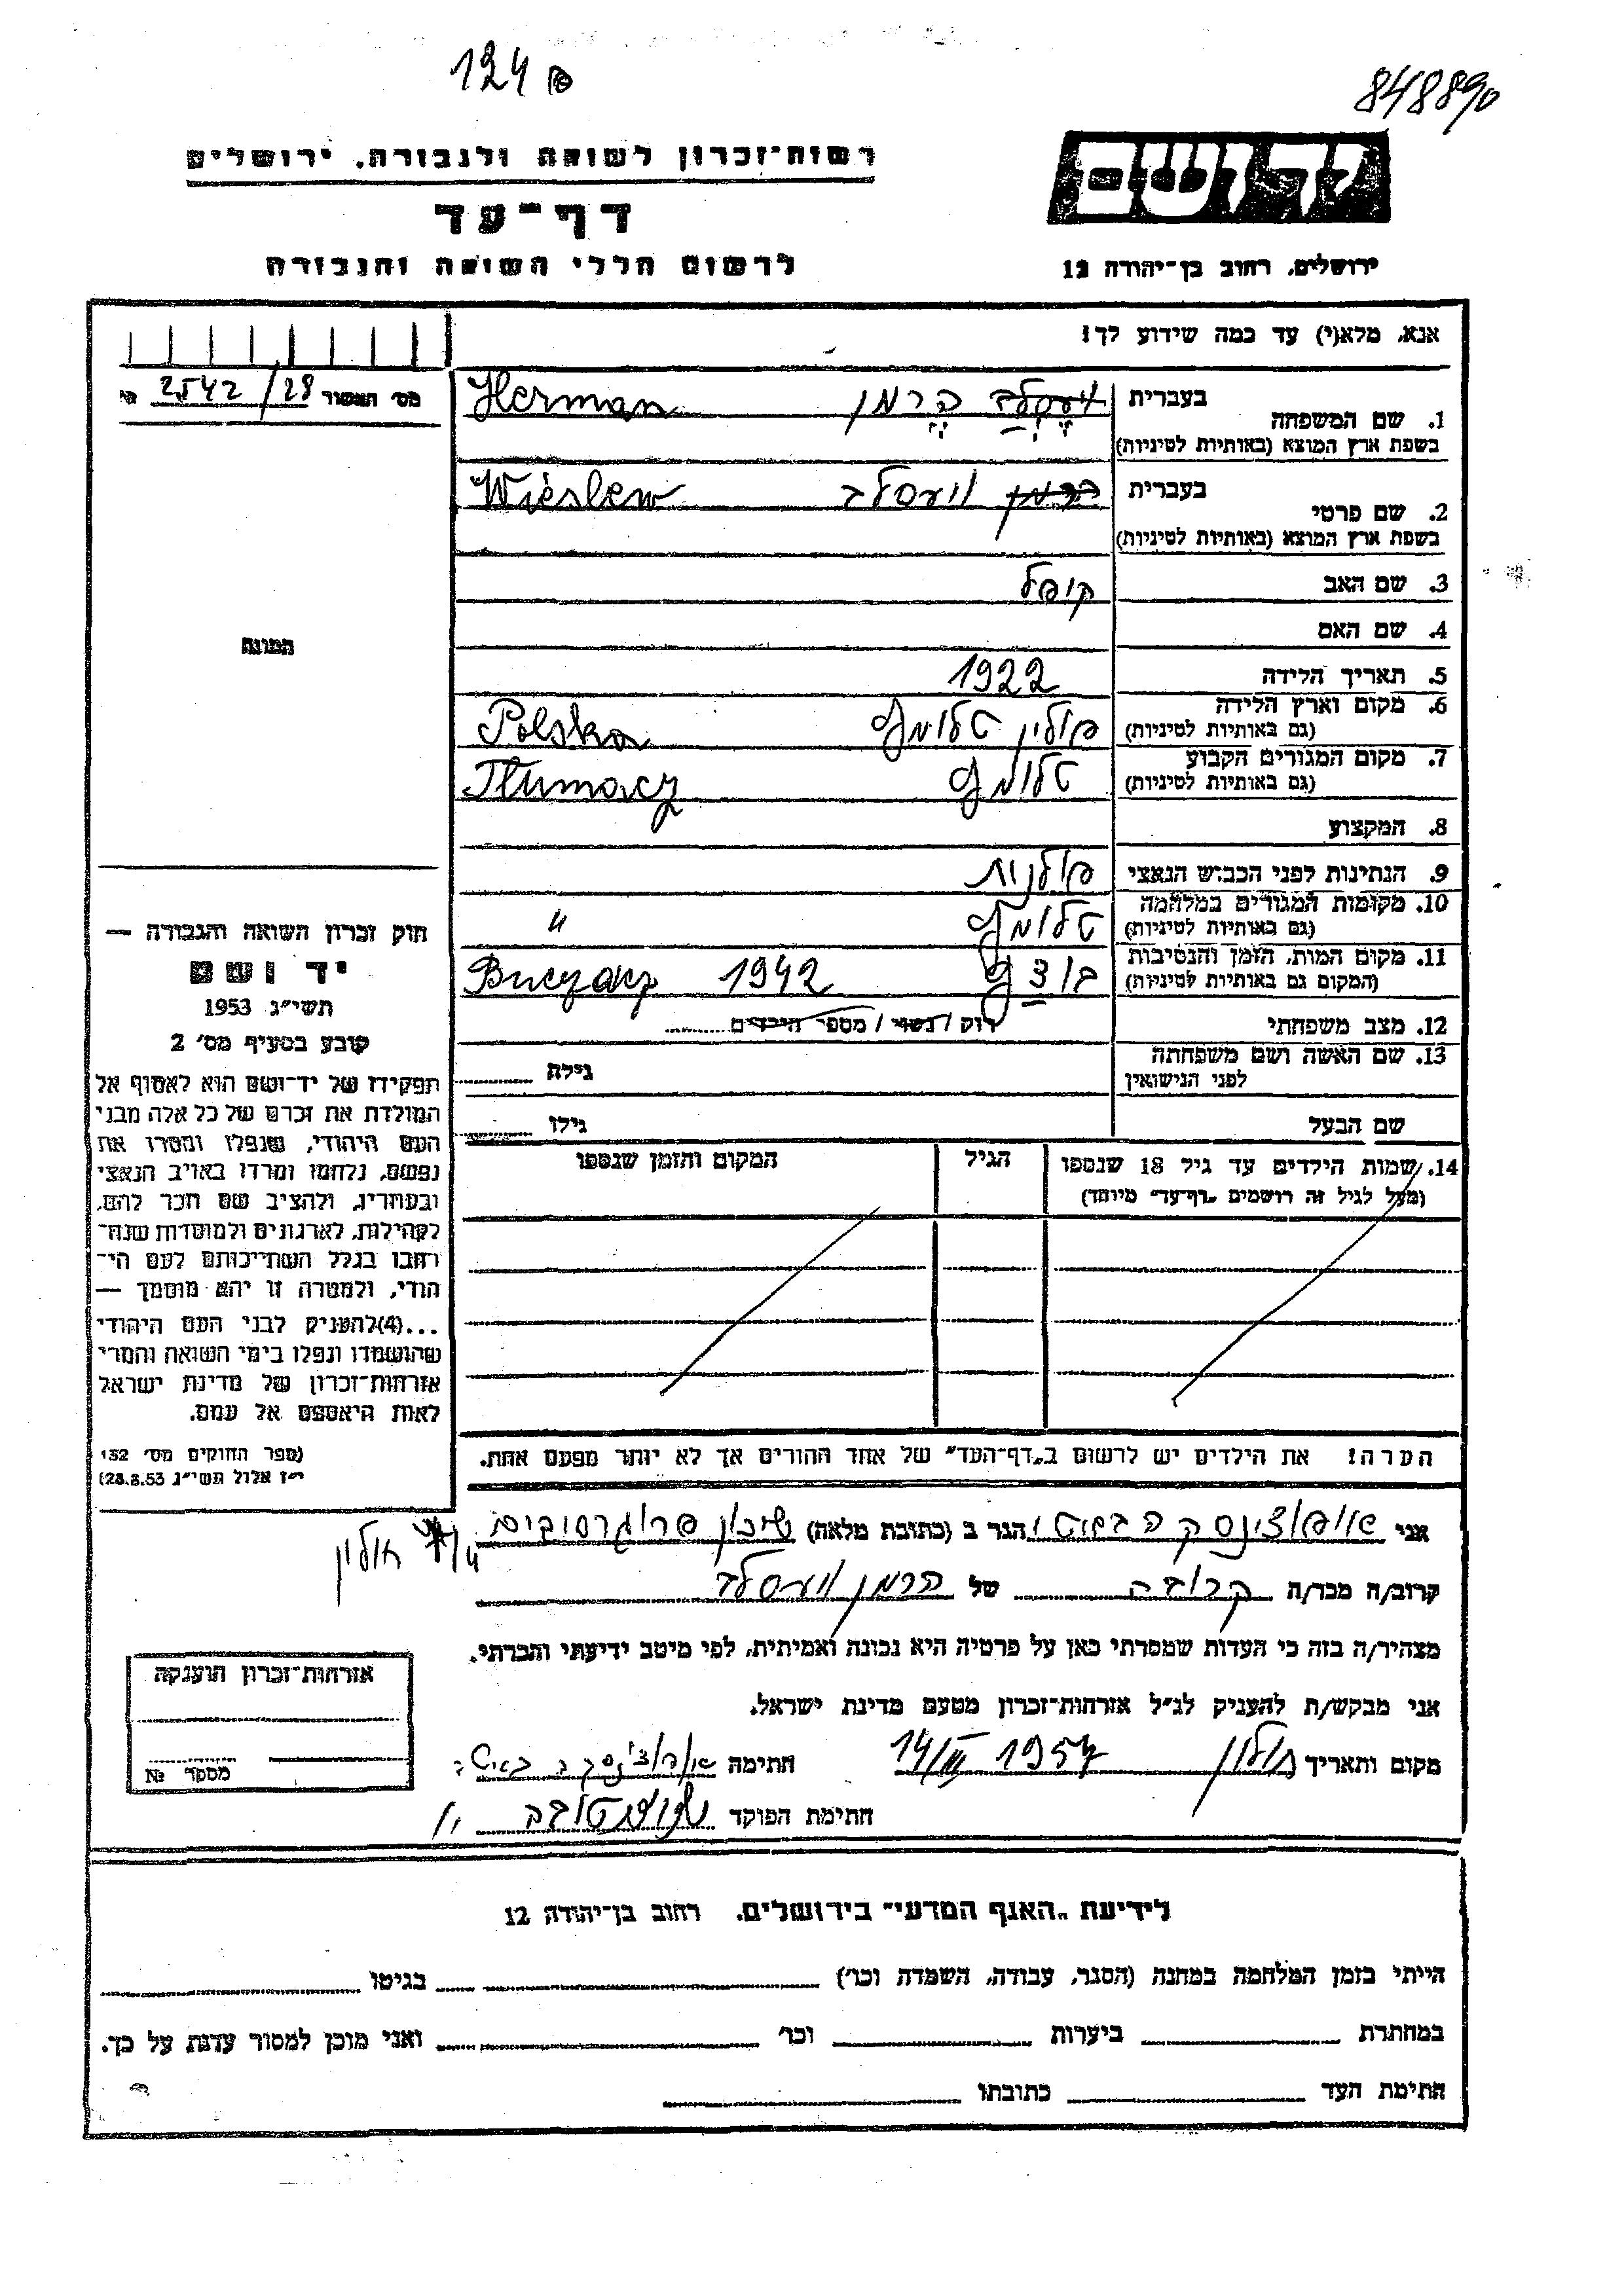 124
848890
רשות־זכרון לשואה ולגבורה. ירושלים
יד ושם
דף־עד
לרשום חללי השואה והגבורה
ירושלים, רחוב בן־יהודה 12
אנא, מלא(י) עד כמה שידוע לך!
מס׳ האשור 2542/28
1. שם המשפחה
בעברית הרמן Herman
בשפת ארץ המוצא (באותיות לטיניות)
2. שם פרטי
בעברית הרמן ויעסלב Wieslew
בשפת ארץ המוצא (באותיות לטיניות)
3. שם האב קופל
4. שם האם
תמונה
5. תאריך הלידה 1922
6. מקום וארץ הלידה פולין טלומץ Polska
(גם באותיות לטיניות)
7. מקום המגורים הקבוע טלומץ Tlumacz
(גם באותיות לטיניות)
8. המקצוע
9. הנתינות לפני הכבוש הנאצי פולנית
10. מקומות המגורים במלחמה טלומץ "
(גם באותיות לטיניות)
11. מקום המות, הזמן והנסיבות 1942 Buczacz
(המקום גם באותיות לטיניות)
12. מצב משפחתי רוק / נשוי / מספר הילדים
13. שם האשה ושם משפחתה גילה
לפני הנישואין
שם הבעל גילו
14. שמות הילדים עד גיל 18 שנספו הגיל המקום והזמן שנספו
(מעל לגיל זה רושמים "דף־עד" מיוחד)
חוק זכרון השואה והגבורה —
יד ושם
תשי״ג 1953
קובע בסעיף מס׳ 2
תפקידו של יד־ושם הוא לאסוף אל
המולדת את זכרם של כל אלה מבני
העם היהודי, שנפלו ומסרו את
נפשם, נלחמו ומרדו באויב הנאצי
ובעוזריו, ולהציב שם וזכר להם,
לקהילות, לארגונים ולמוסדות שנח־
רבו בגלל השתייכותם לעם הי־
הודי, ולמטרה זו יהא מוסמך —
...(4) להעניק לבני העם היהודי
שהושמדו ונפלו בימי השואה והמרי
אזרחות־זכרון של מדינת ישראל
לאות היאספם אל עמם.
(ספר החוקים מס׳ 132
י״ז אלול תשי״ג 28.8.53)
הערה! את הילדים יש לרשום ב"דף־העד" של אחד ההורים אך לא יותר מפעם אחת.
אני הגר ב (כתובת מלאה) שיכון פרוגרסיבים
חולון
קרוב/ה מכר/ה קרובה של הרמן ויעסלב
מצהיר/ה בזה כי העדות שמסרתי כאן על פרטיה היא נכונה ואמיתית, לפי מיטב ידיעתי והכרתי.
אני מבקש/ת להעניק לנ״ל אזרחות־זכרון מטעם מדינת ישראל.
מקום ותאריך חולון 14/III 1957 חתימה
חתימת הפוקד
אזרחות־זכרון הוענקה
מספר №
לידיעת "האגף המדעי" בירושלים. רחוב בן־יהודה 12
הייתי בזמן המלחמה במחנה (הסגר, עבודה, השמדה וכו׳) בגיטו
במחתרת ביערות וכו׳ ואני מוכן למסור עדות על כך.
חתימת העד כתובתו